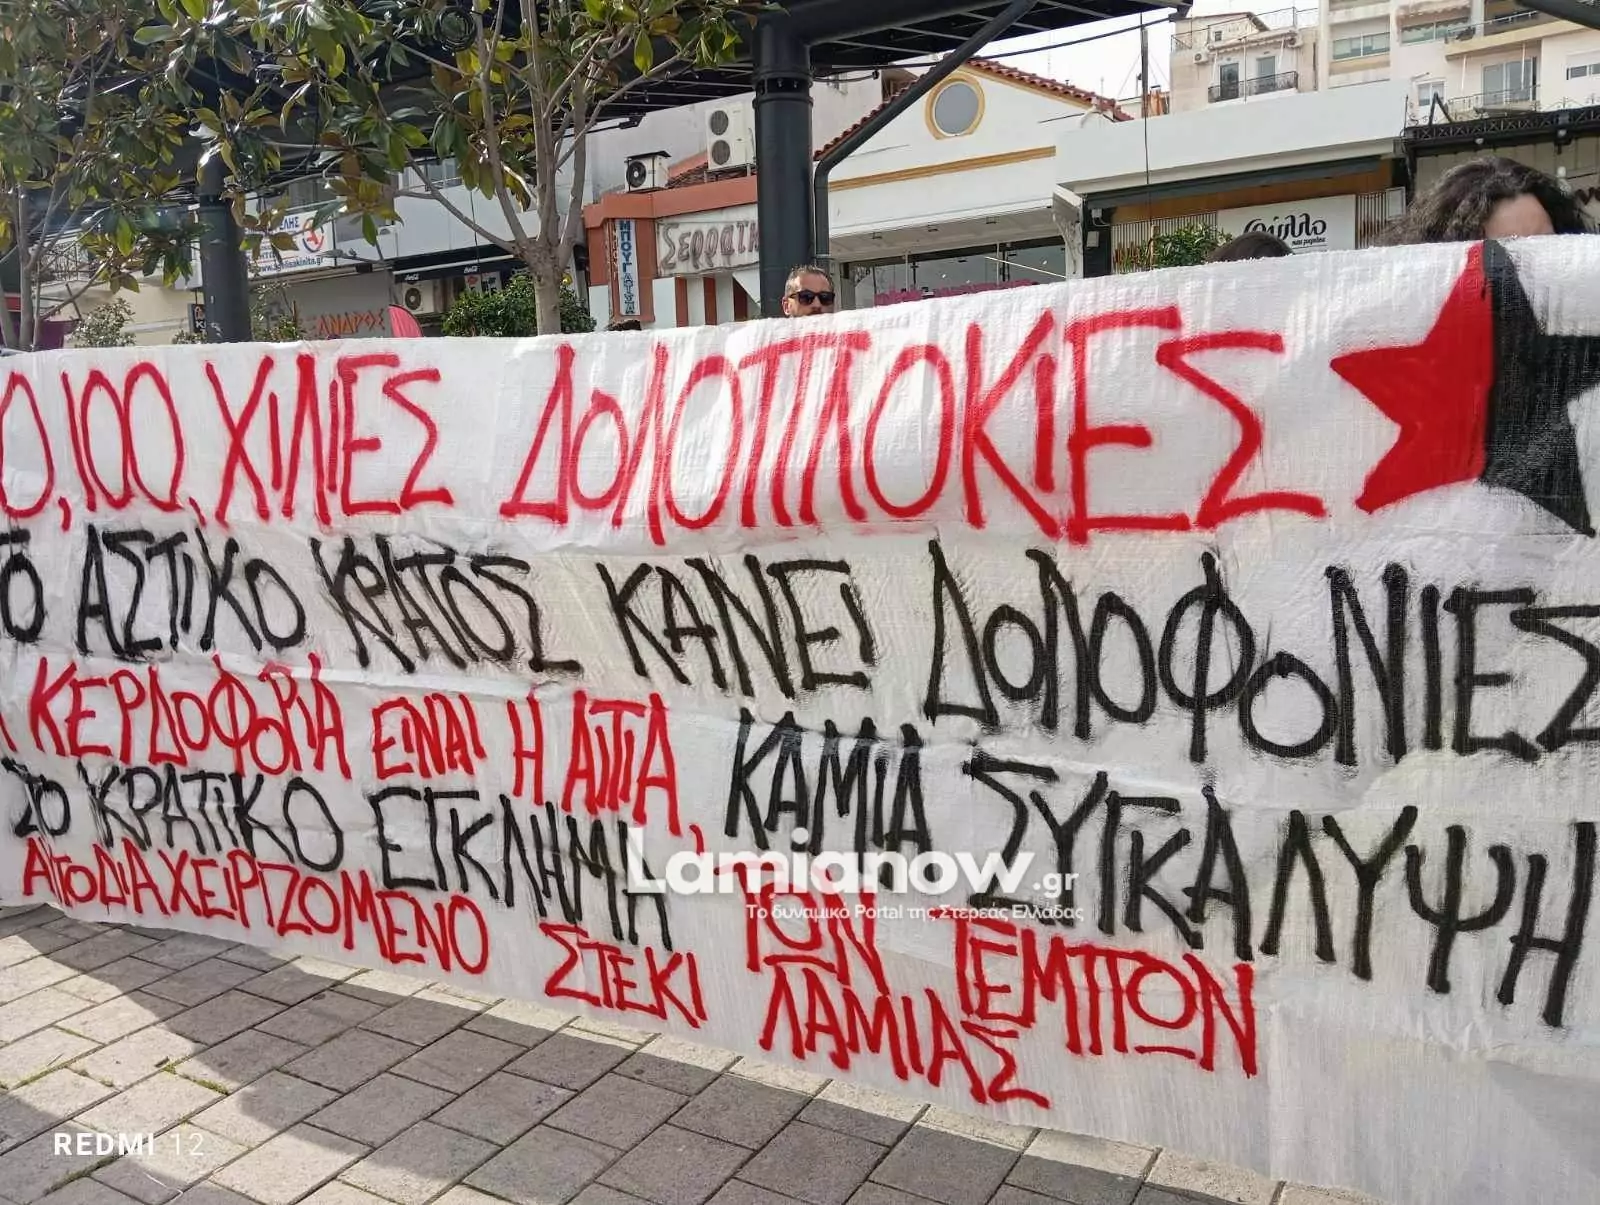 ΜΠΟΥΓΑΤΣΑ
Σερραϊκ
φύλλο
ΞΑΝΔΡΟΣ
0, 100, ΧΙΛΙΕΣ ΔΟΛΟΠΛΟΚΙΕΣ
ΤΟ ΑΣΤΙΚΟ ΚΡΑΤΟΣ ΚΑΝΕΙ ΔΟΛΟΦΟΝΙΕΣ
Η ΚΕΡΔΟΦΟΡΙΑ ΕΙΝΑΙ Η ΑΙΤΙΑ, ΚΑΜΙΑ ΣΥΓΚΑΛΥΨΗ
ΣΤΟ ΚΡΑΤΙΚΟ ΕΓΚΛΗΜΑ ΤΩΝ ΤΕΜΠΩΝ
ΑΥΤΟΔΙΑΧΕΙΡΙΖΟΜΕΝΟ ΣΤΕΚΙ ΛΑΜΙΑΣ
Lamianow.gr
Το δυναμικό Portal της Στερεάς Ελλάδας
REDMI 12